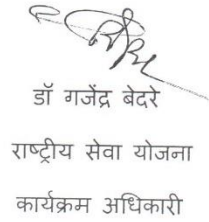 डॉ गजेंद्र बेदरे
राष्ट्रीय सेवा योजना
कार्यक्रम अधिकारी